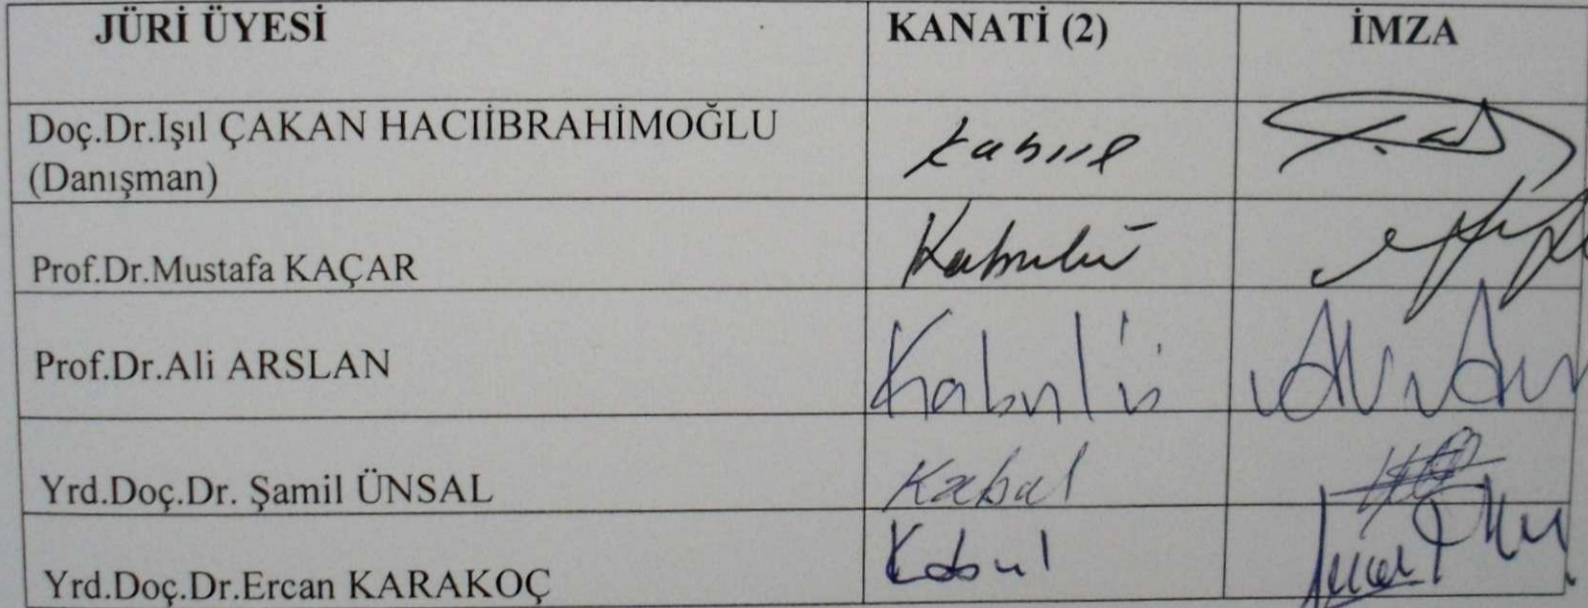 JÜRİ ÜYESİ KANATİ (2) İMZA
Doç.Dr.Işıl ÇAKAN HACIİBRAHİMOĞLU kabul
(Danışman)
Prof.Dr.Mustafa KAÇAR Kabulü
Prof.Dr.Ali ARSLAN Kabulü
Yrd.Doç.Dr. Şamil ÜNSAL Kabul
Yrd.Doç.Dr.Ercan KARAKOÇ Kabul